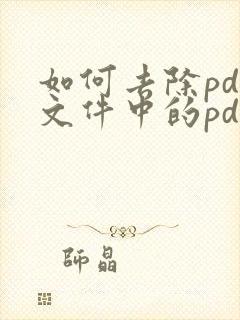 如何去除pd
文件中的pd
師晶